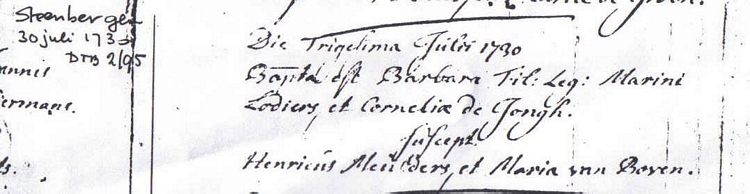 Steenbergen
30 juli 1730
DTB 2/95
annis
iermans.
ts.
Die Trigesima Julii 1730
Bapta est Barbara Fil: Leg: Marini
Lodiers et Corneliæ de Jongh.
suscept.
Henricus Meulders, et Maria van Boven.